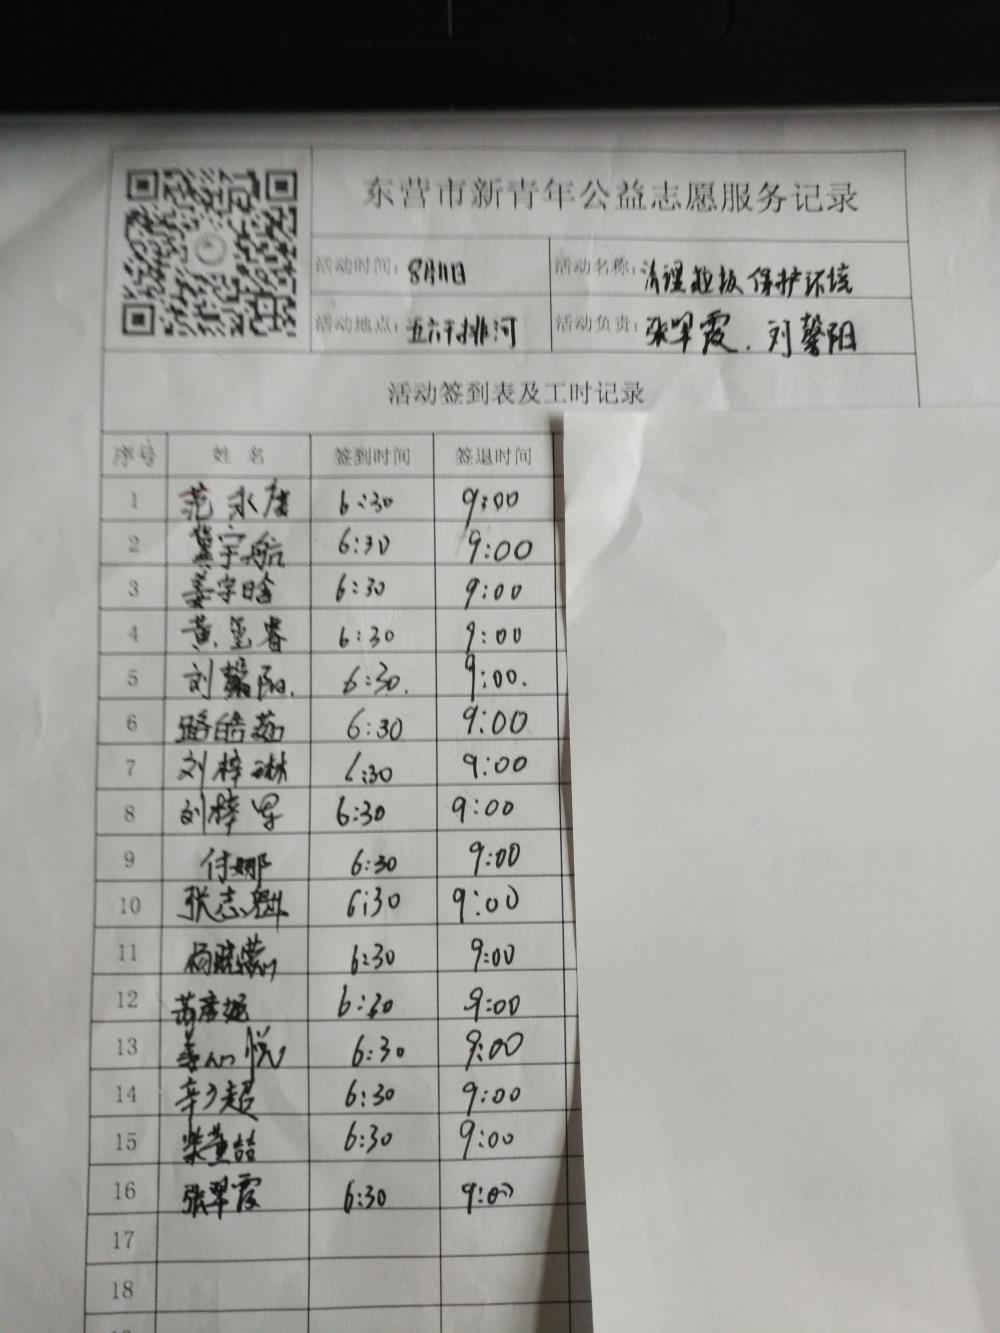 东营市新青年公益志愿服务记录
活动时间: 8月11日 活动名称: 清理垃圾 保护环境
活动地点: 五六干排河 活动负责: 张翠霞. 刘馨阳
活动签到表及工时记录
序号 姓 名 签到时间 签退时间
1 范永康 6:30 9:00
2 冀宇航 6:30 9:00
3 姜宇晗 6:30 9:00
4 黄玺睿 6:30 9:00
5 刘馨阳. 6:30. 9:00.
6 路皓茹 6:30 9:00
7 刘梓琳 6:30 9:00
8 刘梓 6:30 9:00
9 付娜 6:30 9:00
10 张志魁 6:30 9:00
11 杨晓 6:30 9:00
12 6:30 9:00
13 姜心悦 6:30 9:00
14 超 6:30 9:00
15 柴 6:30 9:00
16 张翠霞 6:30 9:00
17
18